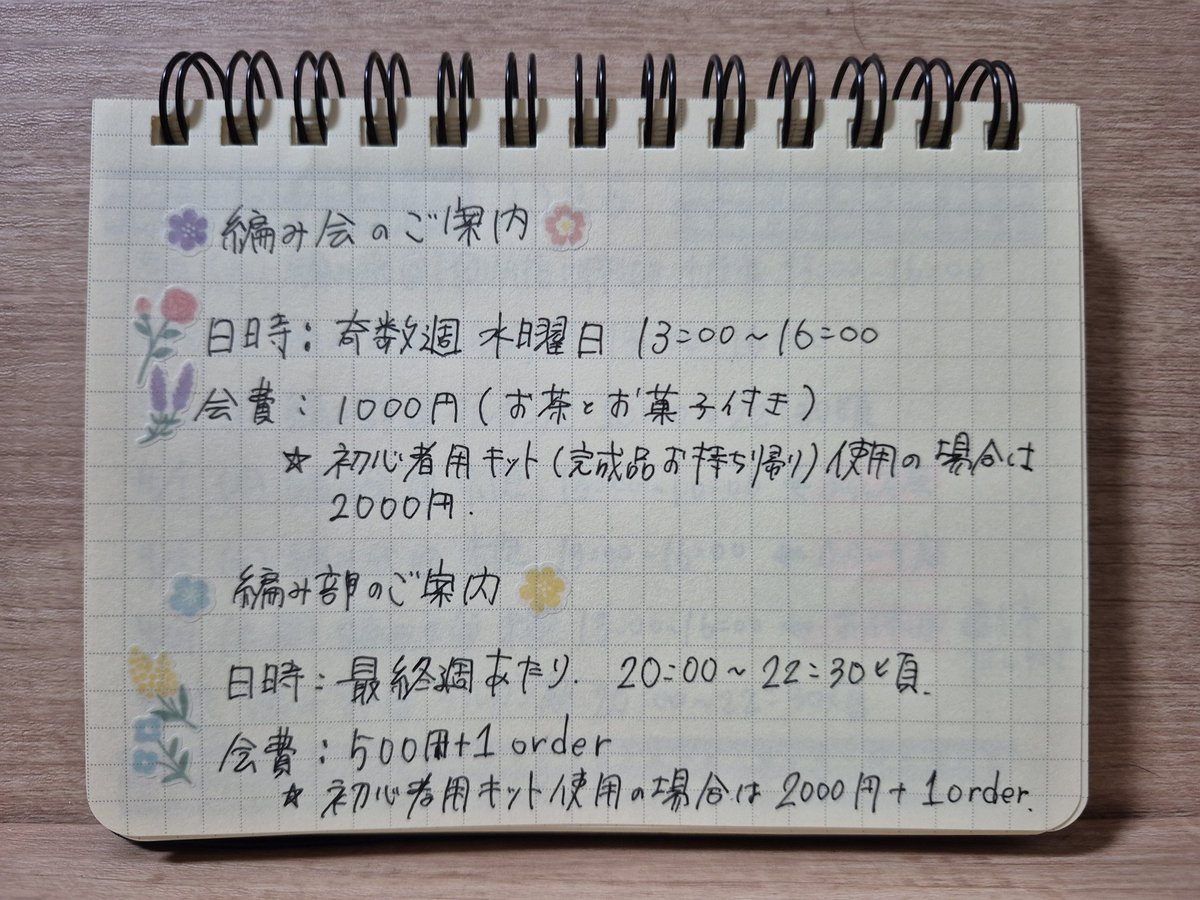 編み会のご案内
日時: 奇数週 水曜日 13:00~16:00
会費: 1000円(お茶とお菓子付き)
☆ 初心者用キット(完成品お持ち帰り)使用の場合は
2000円.
編み部のご案内
日時: 最終週あたり. 20:00~22:30頃.
会費: 500円+1 order
☆ 初心者用キット使用の場合は 2000円+1order.